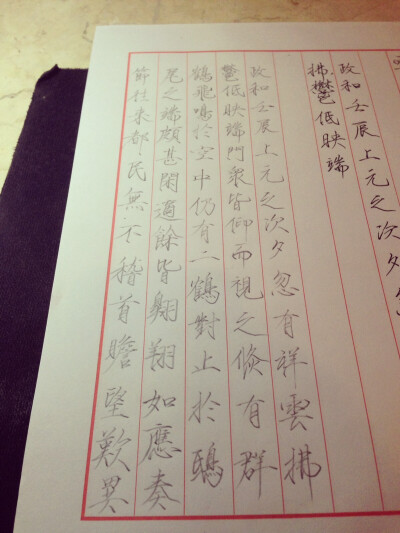 政和壬辰上元之次夕
拂鬱低映端
政和壬辰上元之次夕忽有祥雲拂
鬱低映端門衆皆仰而視之倏有群
鶴飛鳴於空中仍有二鶴對止於鴟
尾之端頗甚閑適餘皆翱翔如應奏
節往來都民無不稽首瞻望歎異